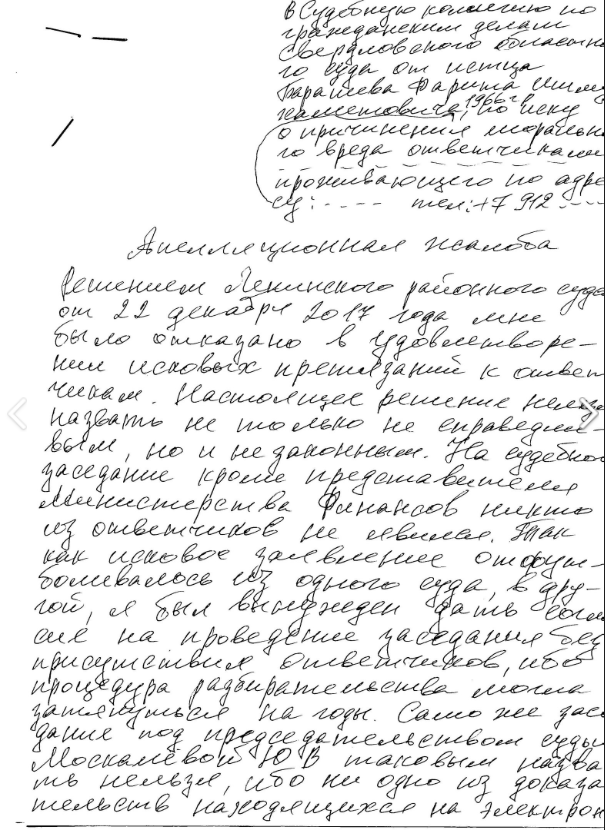 в Судебную коллегию по
гражданским делам
Свердловского областно
го суда от истца
Барашева Фарита
1966г. по иску
о причинения моральн
го вреда ответчиками
проживающего по адре
су: ---- тел: +7 912 ----
Апелляционная жалоба
Решением Ленинского районного суда
от 22 декабря 2017 года мне
было отказано в удовлетворе-
нии исковых претязаний к ответ
чикам. Настоящее решение нельз
назвать не только не справедли
вым, но и не законным. На судебном
заседание кроме представителя
Министерства Финансов никто
из ответчиков не явился. Так
как исковое заявление отфут-
боливалось из одного суда, в дру-
гой, я был вынужден дать согла
сие на проведение заседания без
присутствия ответчиков, ибо
процедура разбирательства могла
затянуться на годы. Само же засе
дание под председательством судьи
Москалёвой Ю.В таковым назва
ть нельзя, ибо ни одно из доказа
тельств находящихся на электрон